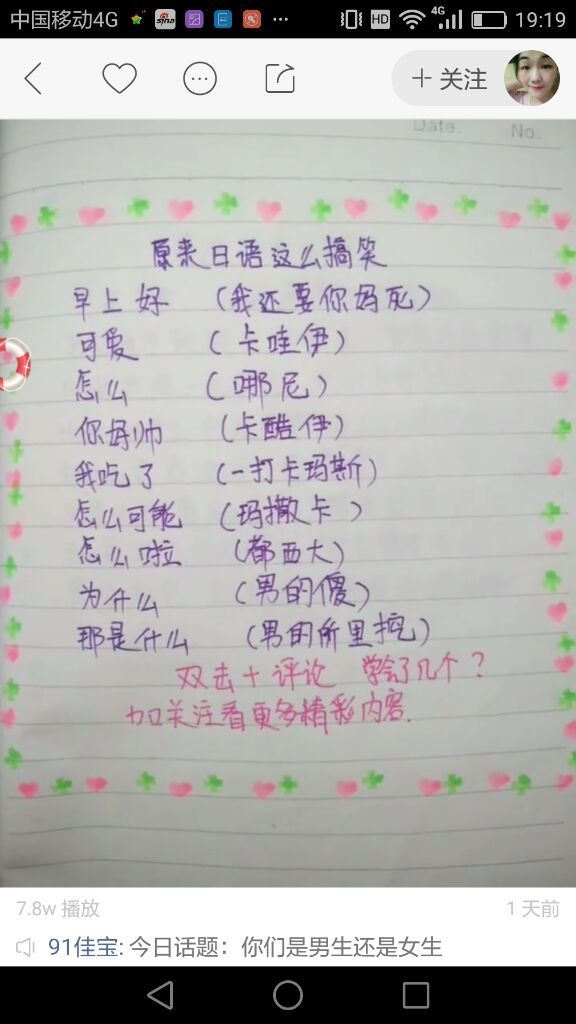 中国移动4G
sina
HD
4G
19:19
+ 关注
Date.
No.
原来日语这么搞笑
早上好 (我还要你妈死)
可爱 (卡哇伊)
怎么 (哪尼)
你好帅 (卡酷伊)
我吃了 (一打卡玛斯)
怎么可能 (玛撒卡)
怎么啦 (都西大)
为什么 (男的傻)
那是什么 (男的所里挖)
双击+评论 学会了几个?
加关注看更多精彩内容.
7.8w 播放
1天前
91佳宝: 今日话题：你们是男生还是女生